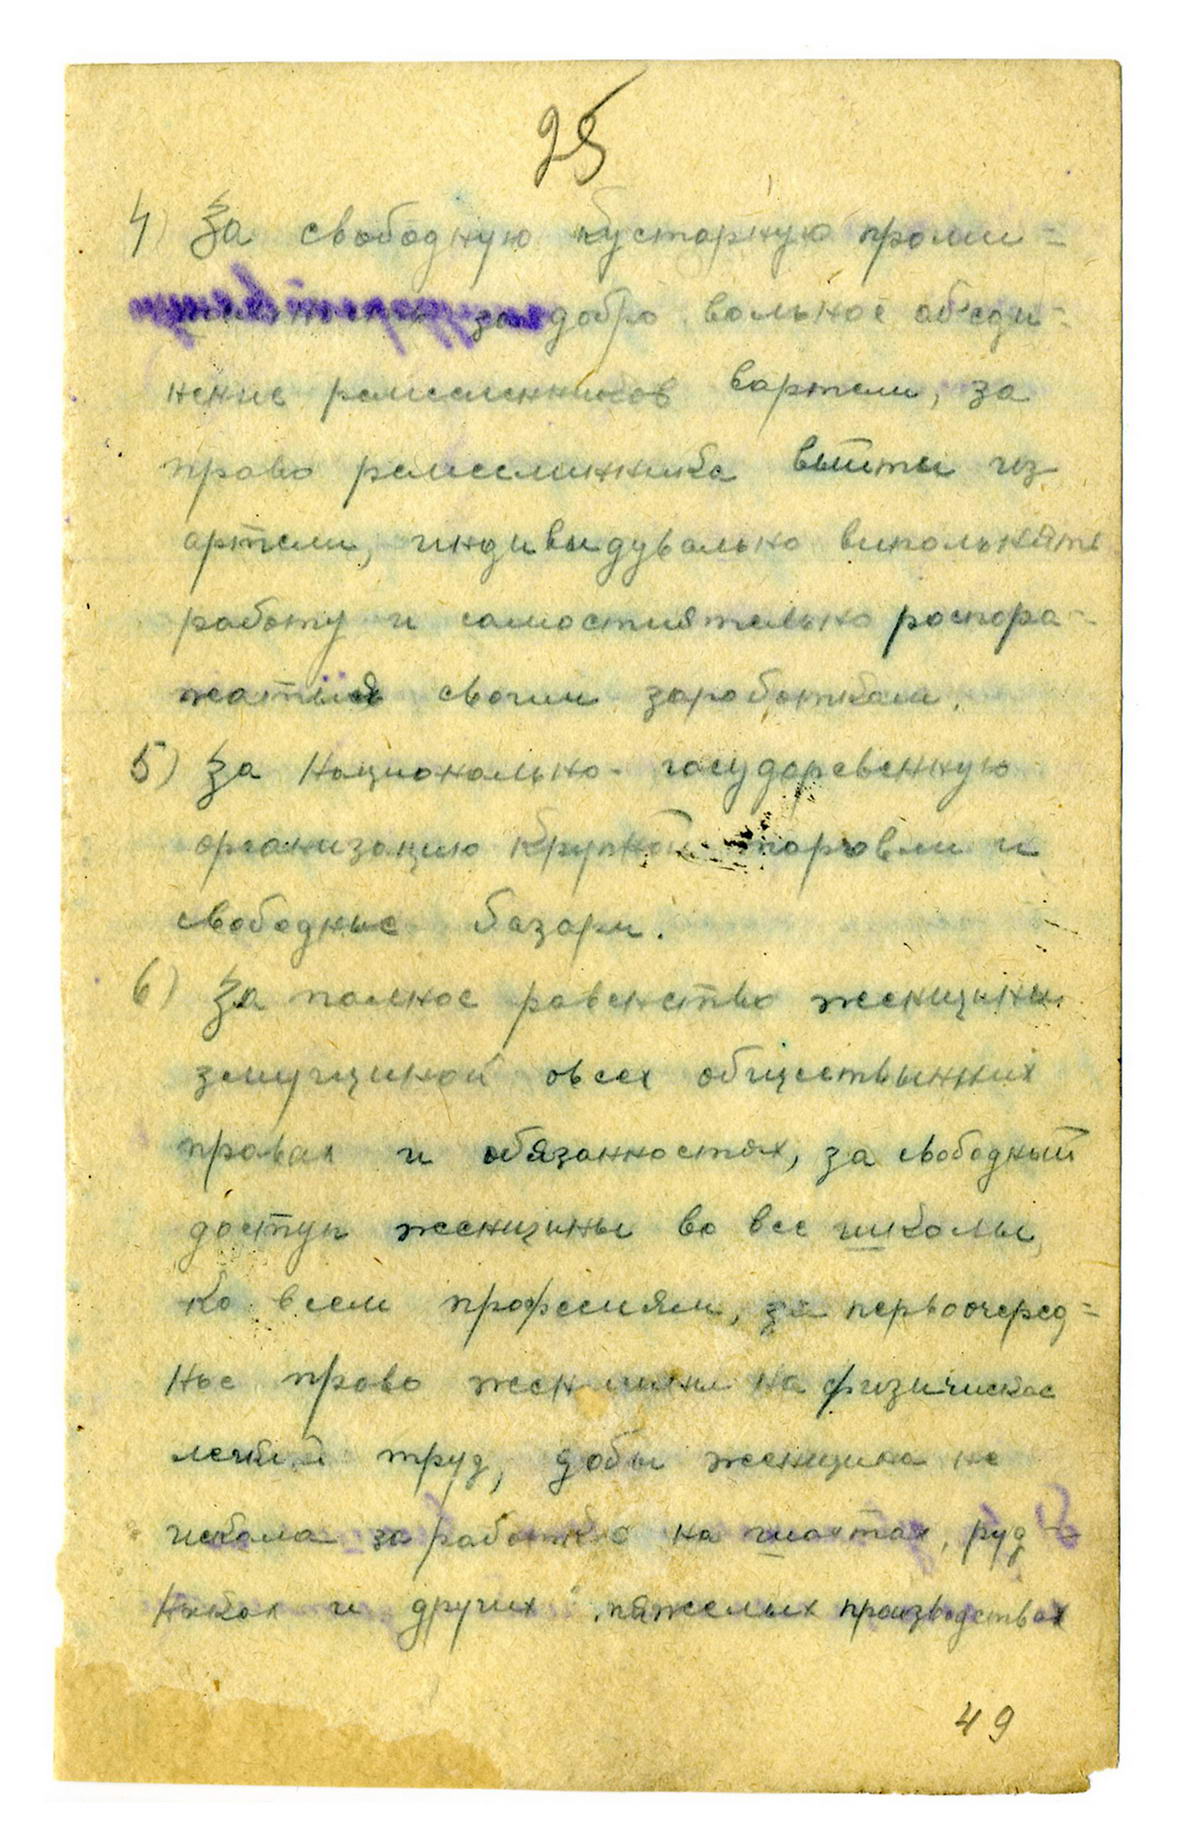 25
4) За свободную кустарную проми=
за добро вольное об'еди-
нение ремесленников вартели, за
право ремеслинника выйти из
артели, индивыдувально випольнять
работу и самостиятельно роспора-
жаться своим заработкам.
5) За национально-государсвенную
организацию крупной торговли и
свободные базари.
6) За полное равенство женщини
змущиной овсех обществынних
правах и обязанностях, за свободный
доступ женщины во все школы,
ко всем професиям, за первоочеред=
ное право женщины на физическое
легкий труд, добы женщина не
искала заработко на шахтах, руд-
никах и других тяжелых производствах
49